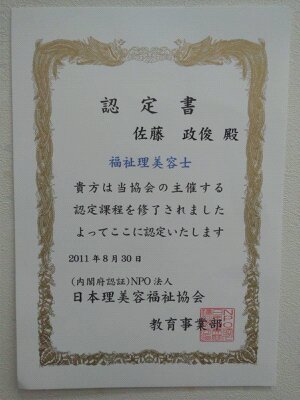 認定書
佐藤 政俊 殿
福祉理美容士
貴方は当協会の主催する
認定課程を修了されました
よってここに認定いたします
2011年8月30日
(内閣府認証)NPO法人
日本理美容福祉協会
教育事業部